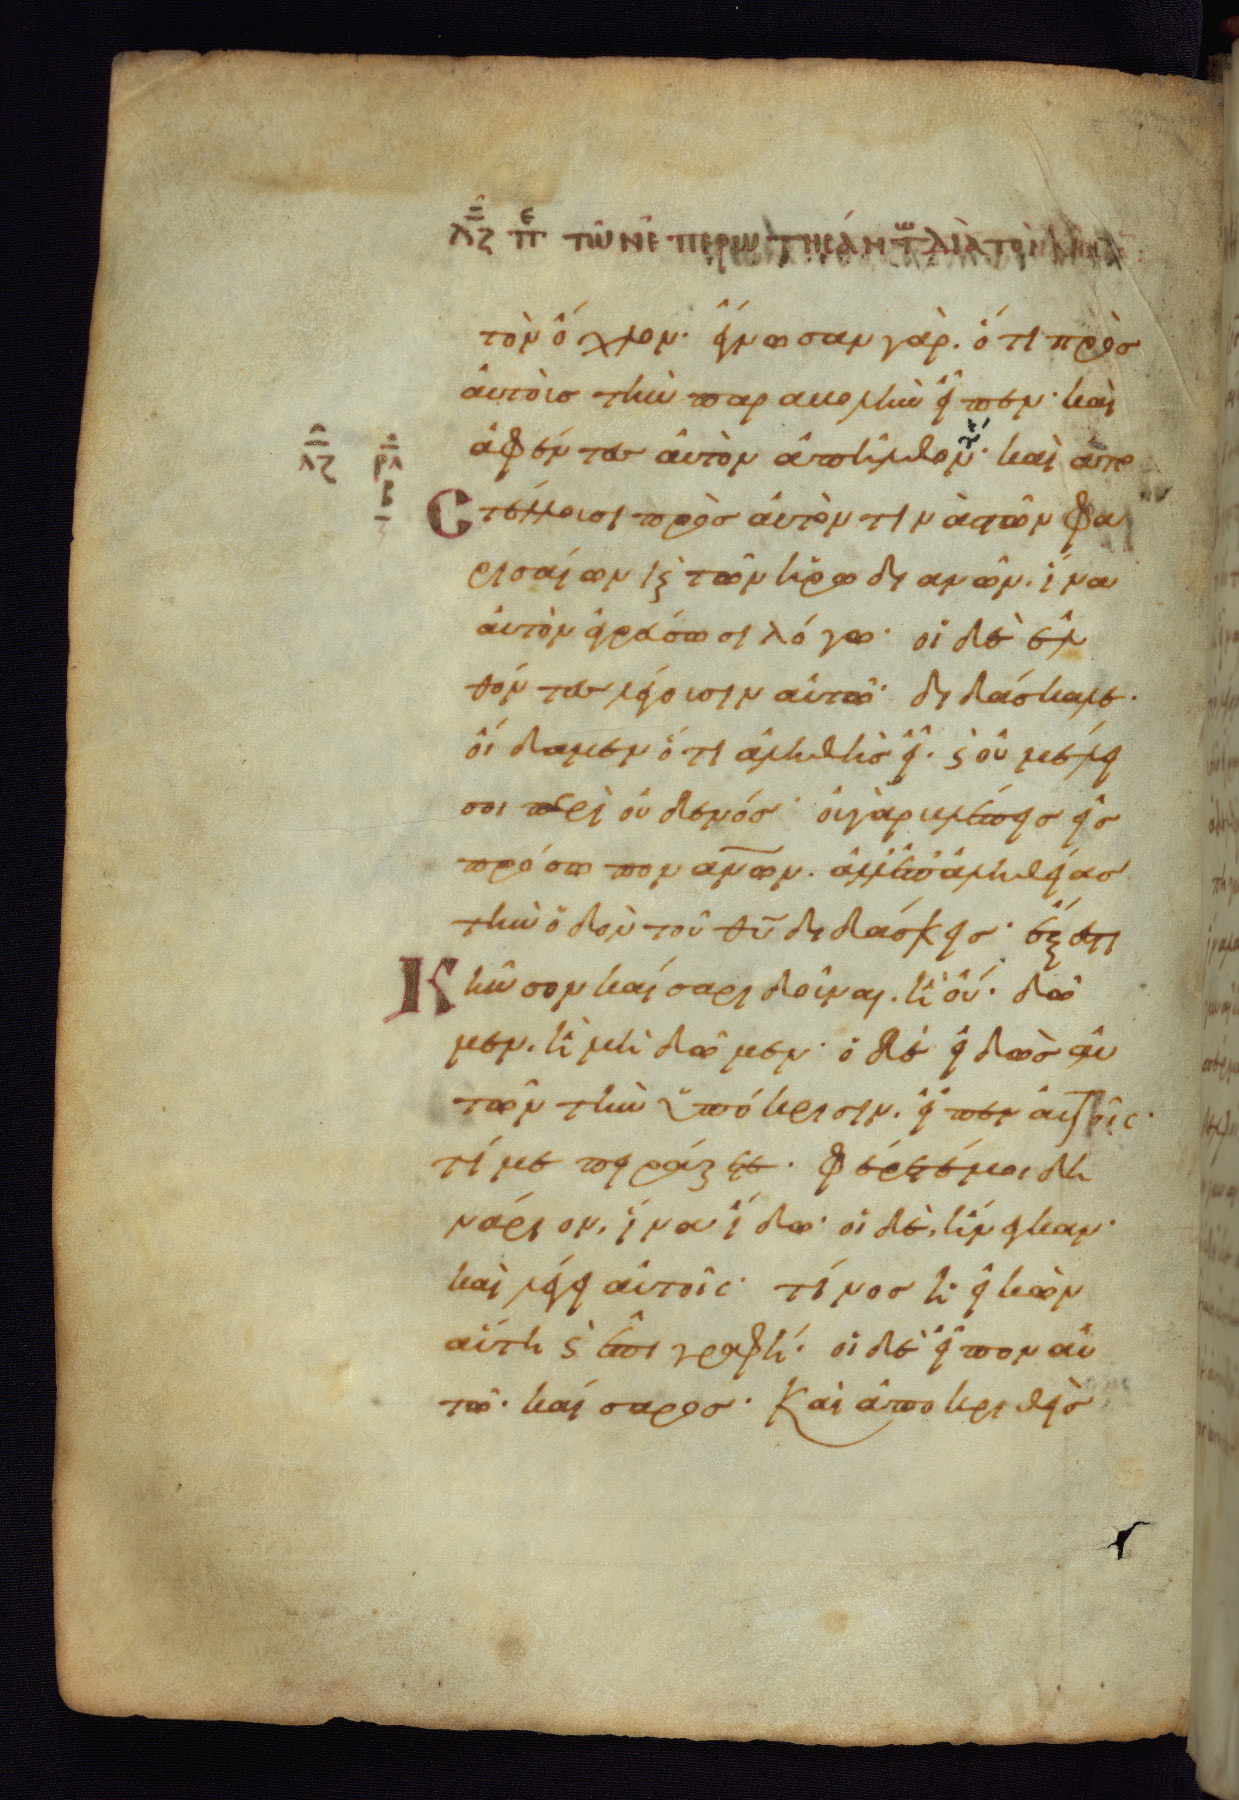 λζ π̅ε̅ τῶν ἐπερωτησάντων διὰ τὸν
τὸν ὄχλον· ἔγνωσαν γὰρ. ὅτι πρὸς
αὐτοὺς τὴν παραβολὴν εἶπεν· καὶ
ἀφέντες αὐτὸν ἀπῆλθον· καὶ ἀπο
λζ ρλ β
στέλλουσι πρὸς αὐτὸν τινὰς τῶν φα
ρισαίων κ τῶν ἡρωδιανῶν. ἵνα
αὐτὸν ἀγρεύσωσι λόγω· οἱ δὲ ἐλ
θόντες λέγουσιν αὐτῶ· διδάσκαλε.
οἴδαμεν ὅτι ἀληθὴς εἶ. κ οὐ μέλει
σοι περὶ οὐδενός· οὐ γὰρ βλέπεις εἰς
πρόσωπον ἀν̅ων. ἀλλ' ἐπ' ἀληθείας
τὴν ὁδὸν τοῦ θ̅υ̅ διδάσκεις· ἔξεστι
κῆνσον καίσαρι δοῦναι. ἢ οὔ· δῶ
μεν. ἢ μὴ δῶμεν· ὁ δὲ εἰδὼς αὐ
τῶν τὴν ὑπόκρισιν. εἶπεν αὐτοῖς·
τί με πειράζετε. φέρετέ μοι δη
νάριον. ἵνα ἴδω· οἱ δὲ. ἤνεγκαν·
καὶ λέγει αὐτοῖς· τίνος ἡ εἰκὼν
αὕτη κ ἐπιγραφή· οἱ δὲ εἶπον αὐ
τῶ· καίσαρος· Καὶ ἀποκριθεὶς